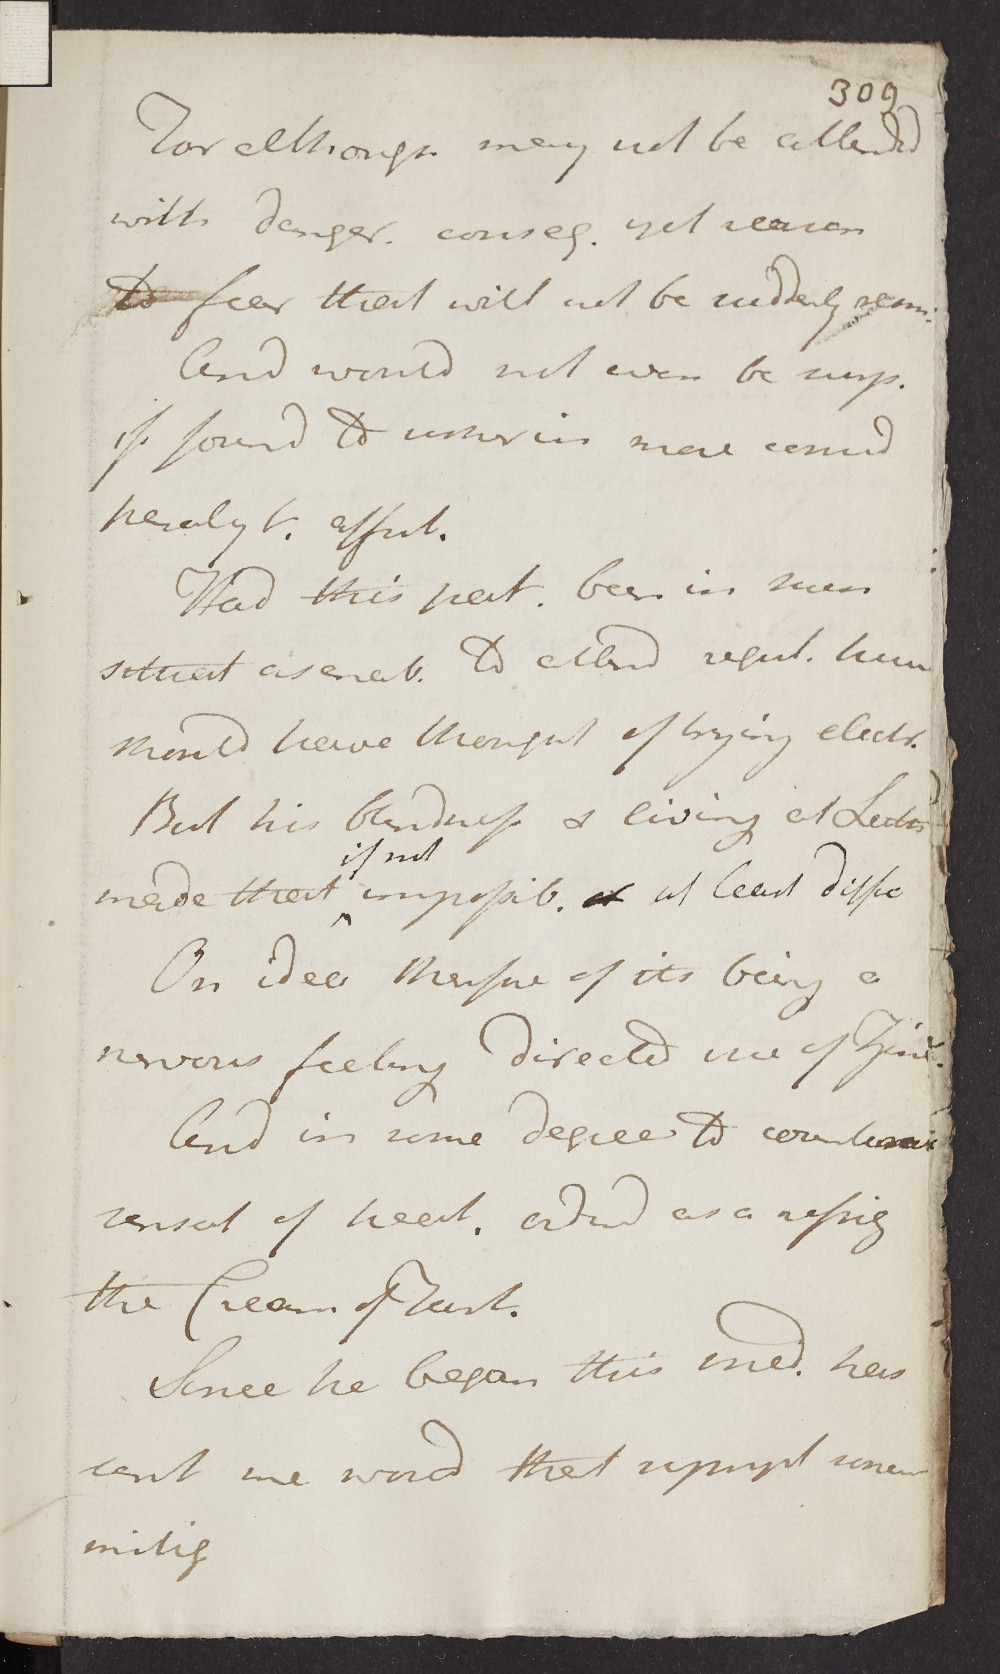 309
For although may not be attended
with danger. conseq. yet reason
to fear that will not be suddenly rem.
And would not even be surp.
if found to usher in more confirmd
paralyt. affect.
Had this pat. been in such
situat as enab. to attend regul. here
should have thought of trying electr.
But his blindness & living at Leith
made that impossib. at least diffic
if not
On idea therfore of its being a
nervous feeling directed use of Zinc.
And in some degree to counteract
sensat of heat. added as a refrig
the Cream of Tart.
Since he began this med. has
sent me word that sympt somew
mitig